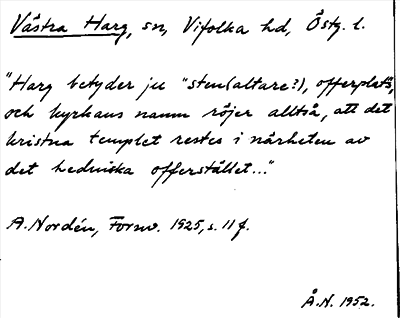 Västra Harg, sn, Vifolka hd, Östg. l.
"Harg betyder ju "sten(altare?), offerplats",
och kyrkans namn röjer alltså, att det
kristna templet restes i närheten av
det hedniska offerstället..."
A. Nordén, Fornv. 1925, s. 11 f.
Å.N. 1952.